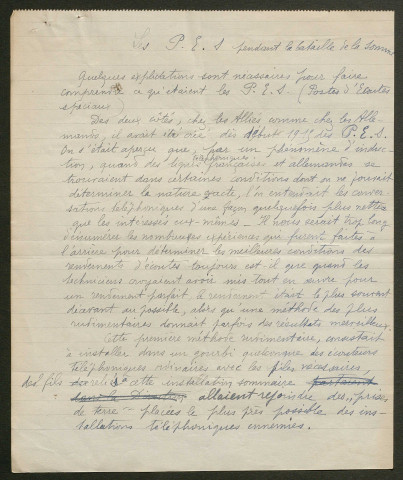 Les P.E.S pendant la bataille de la Somme
Quelques explications sont nécessaires pour faire
comprendre ce qu'étaient les P.E.S. (Postes d'Ecoutes
spéciaux)
Des deux côtés, chez les Alliés comme chez les Alle-
mands, il avait été créé dès début 1915 des P.E.S.
On s'était aperçu que, par un phénomène d'induc-
tion, quand des lignes téléphoniques françaises et allemandes se
trouvaient dans certaines conditions dont on ne pouvait
déterminer la nature exacte, l'on entendait les conver-
sations téléphoniques d'une façon quelquefois plus nette
que les intéressés eux-mêmes - Il nous serait trop long
d'énumérer les nombreuses expériences qui furent faites à
l'arrière pour déterminer les meilleures conditions des
rendements d'écoutes toujours est-il que quand les
techniciens croyaient avoir mis tout en œuvre pour
un rendement parfait, le rendement était le plus souvent
décevant au possible, alors qu'une méthode des plus
rudimentaires donnait parfois des résultats merveilleux.
Cette première méthode rudimentaire, consistait
à installer dans un gourbi quelconque des écouteurs
téléphoniques ordinaires avec les piles nécessaires,
des fils reliés à cette installation sommaire partaient
dans la direction allaient rejoindre des "prises
de terre" - placées le plus près possible des ins-
tallations téléphoniques ennemies.